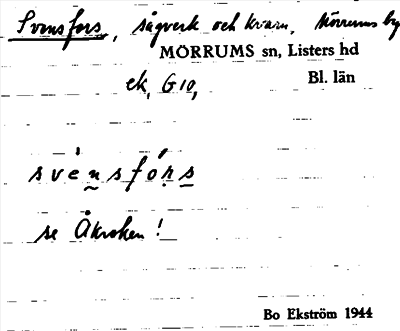 Svensfors, sågverk och kvarn, Mörrums by
MÖRRUMS sn, Listers hd
ek, G10, Bl. län
svènsfórs
se Åkroken!
Bo Ekström 1944